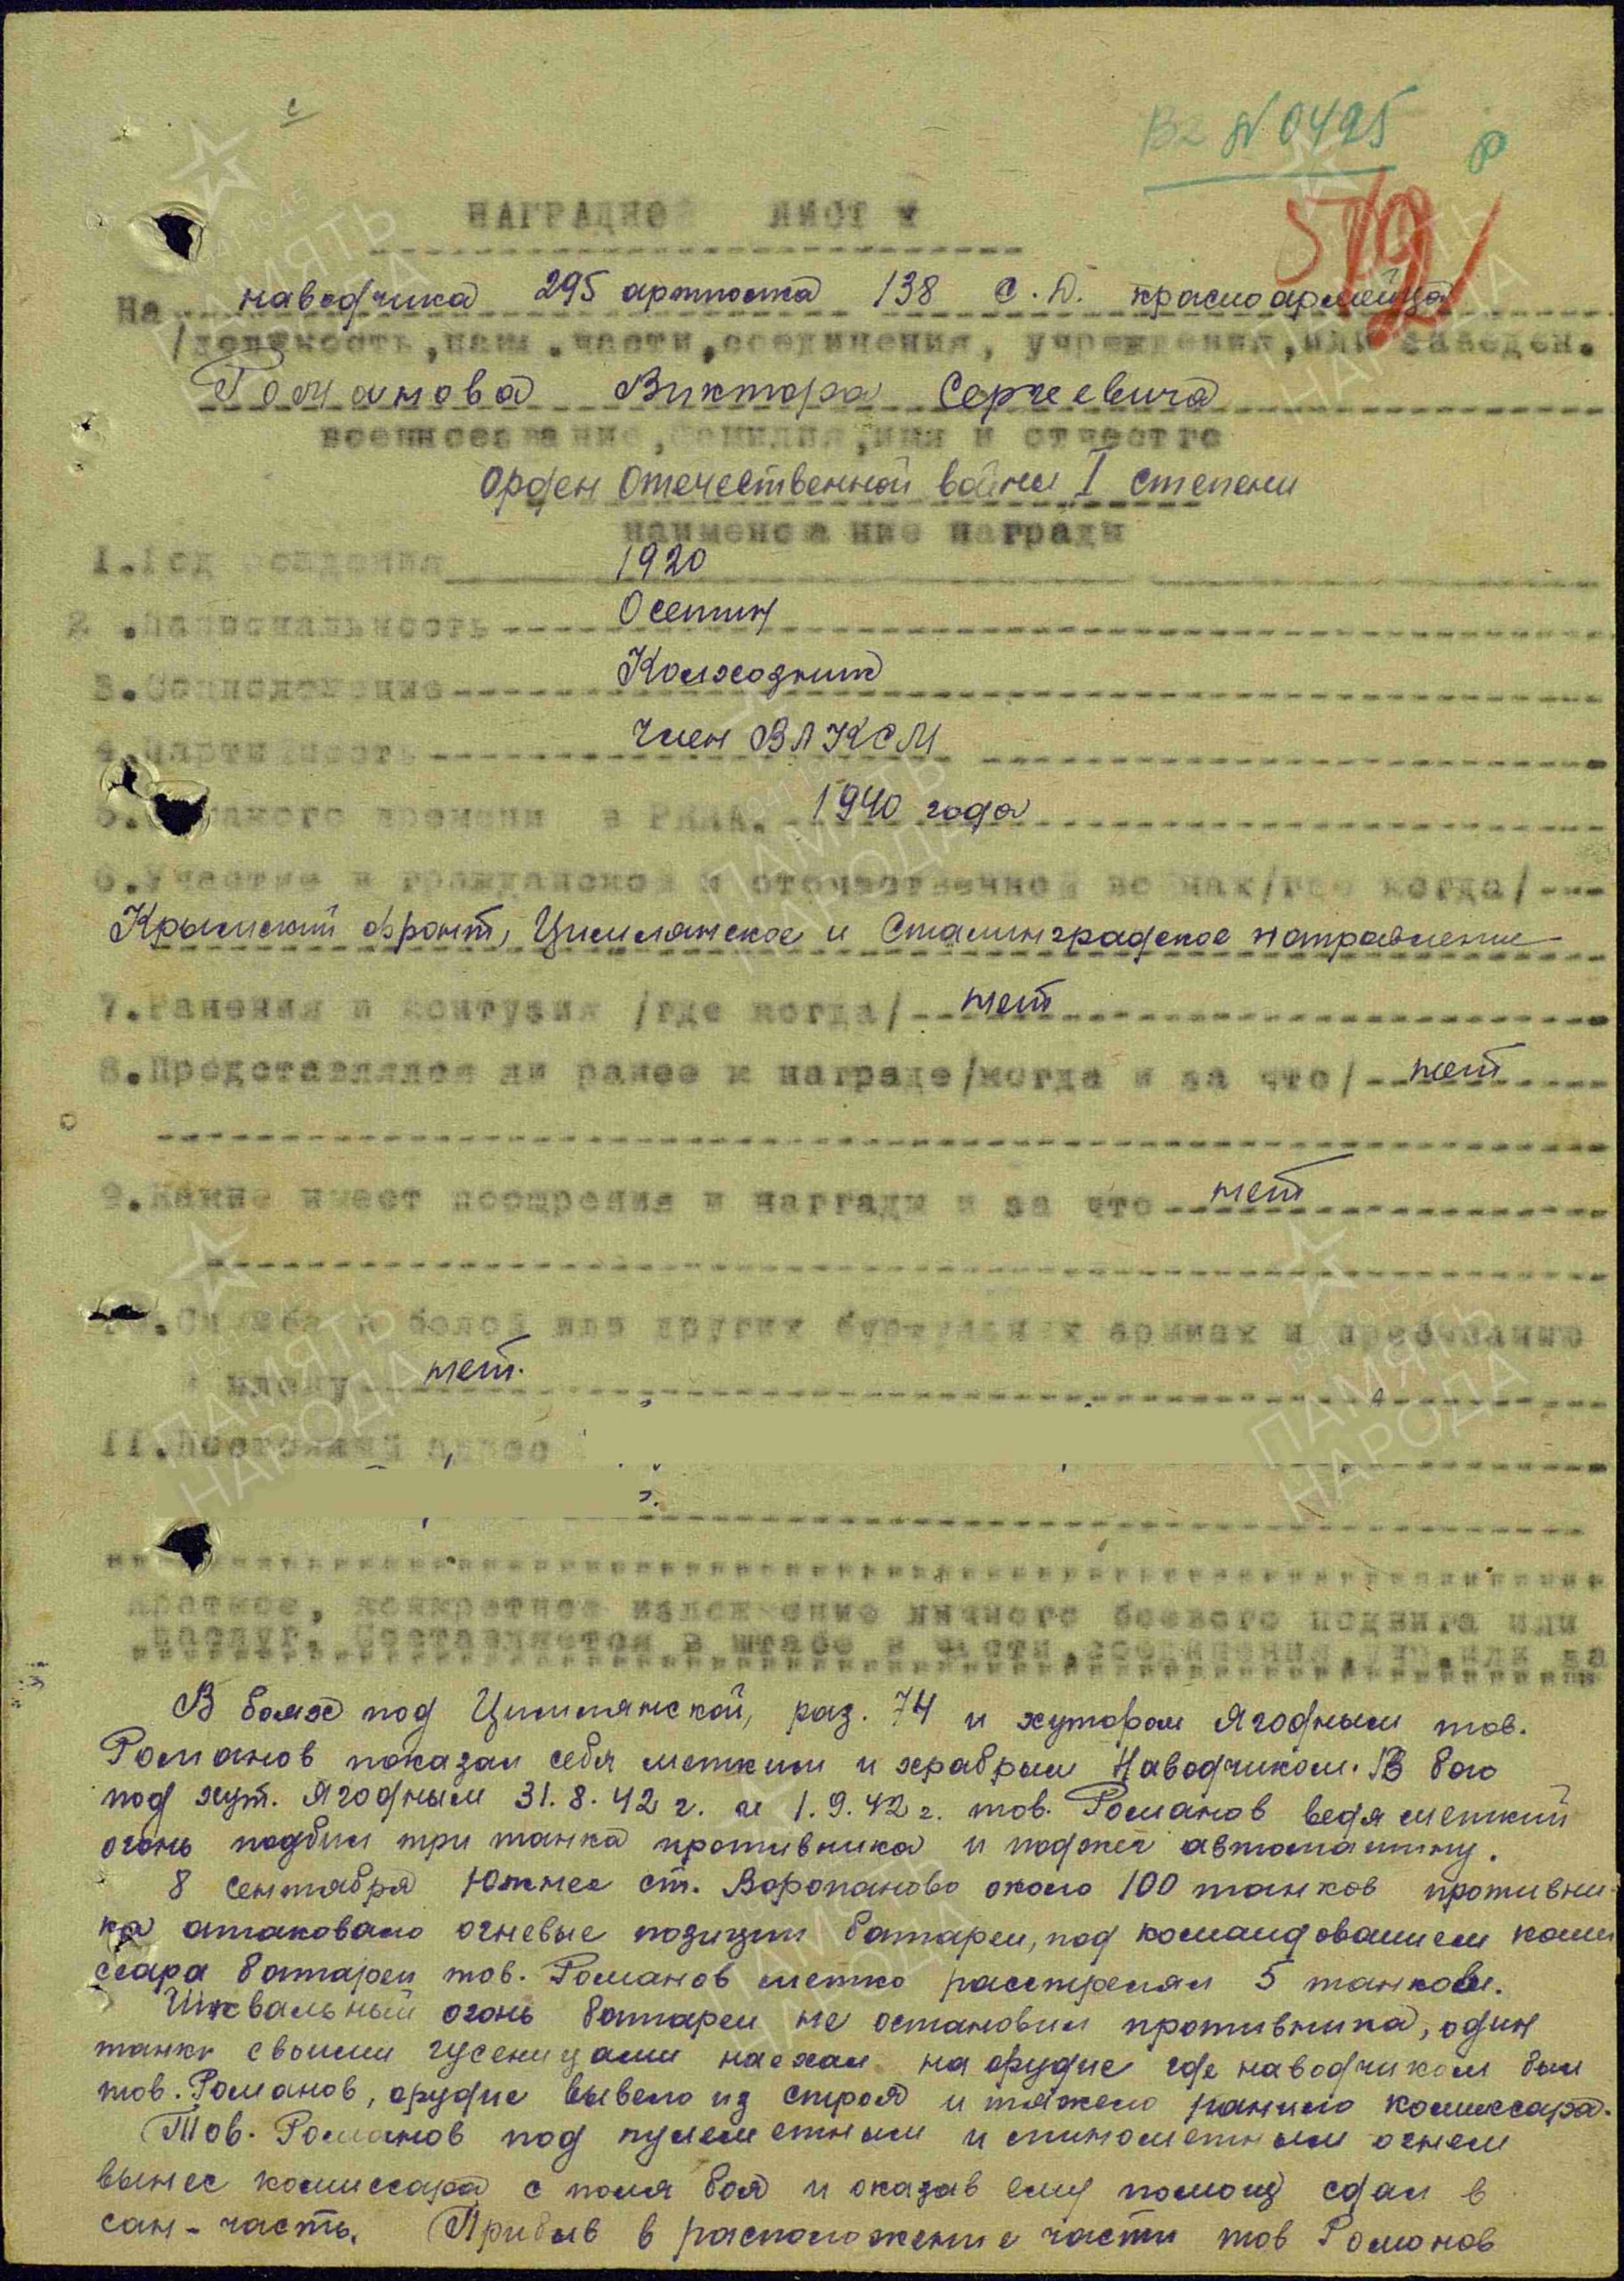 В2 N 0425
НАГРАДНОЙ ЛИСТ
512
На наводчика 295 артполка 138 С.Д. красноармейца
/должность, наим. части, соединения, учреждения, или заведен.
Романова Виктора Сергеевича
военное звание, фамилия, имя и отчество
Орден Отечественной войны I степени
наименование награды
1. Год рождения 1920
2. Национальность Осетин
3. Соцположение Колхозник
4. Партийность Член ВЛКСМ
5. С какого времени в РККА. 1940 года
6. Участие в гражданской и отечественной войнах/где когда/
Крымский фронт, Цимлянское и Сталинградское направление
7. Ранения и контузия /где когда/ нет
8. Представлялся ли ранее к награде/когда и за что/ нет
9. Какие имеет поощрения и наггады и за что нет
10. Служба в белой или других буржуазных армиях и пребывание
в плену нет.
11. Постоянный адрес
Краткое, конкретное изложение личного боевого подвига или
заслуг. Составляется в штабе в части, соединения, учр. или за
В боях под Цимлянской, раз. 74 и хутором Ягодным тов.
Романов показал себя метким и храбрым Наводчиком. В бою
под хут. Ягодным 31.8.42 г. и 1.9.42 г. тов. Романов ведя меткий
огонь подбил три танка противника и поджег автомашину.
8 сентября Южнее ст. Воропаново около 100 танков противни-
ка атаковало огневые позиции батареи, под командованием коми
ссара батареи тов. Романов метко расстрелял 5 танков.
Шквальный огонь батареи не остановил противника, один
танк своими гусеницами наехал на орудие где наводчиком был
тов. Романов, орудие вывело из строя и тяжело ранило комиссара.
Тов. Романов под пулеметным и минометным огнем
вынес комиссара с поля боя и оказав ему помощ сдал в
сан-часть. Прибыв в расположение части тов Романов
ПАМЯТЬ НАРОДА